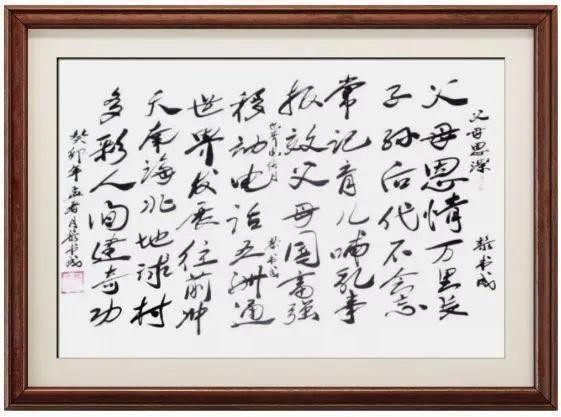 父母恩深
书成
父母恩情万里长
子孙后代不会忘
常记育儿哺乳事
报效父母国富强
书成
移动电话五洲通
世界发展往前冲
天南海北地球村
多彩人间建奇功
癸卯年孟春月书成